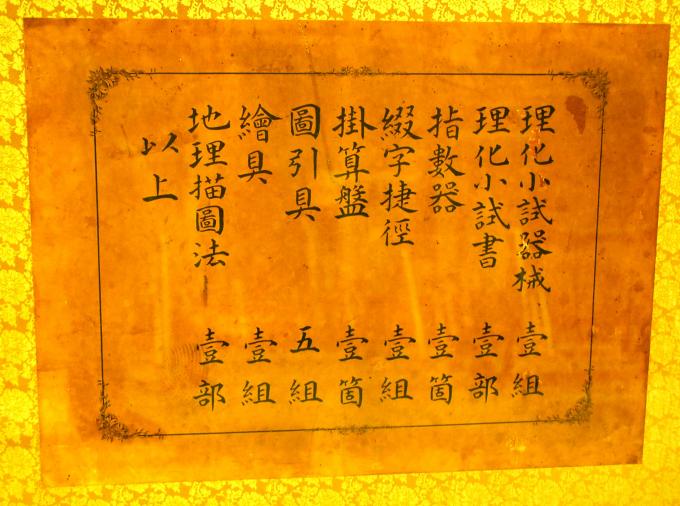 理化小試器械 壹組
理化小試書 壹部
指數器 壹箇
綴字捷徑 壹組
掛算盤 壹箇
圖引具 五組
繪具 壹組
地理描圖法 壹部
以上